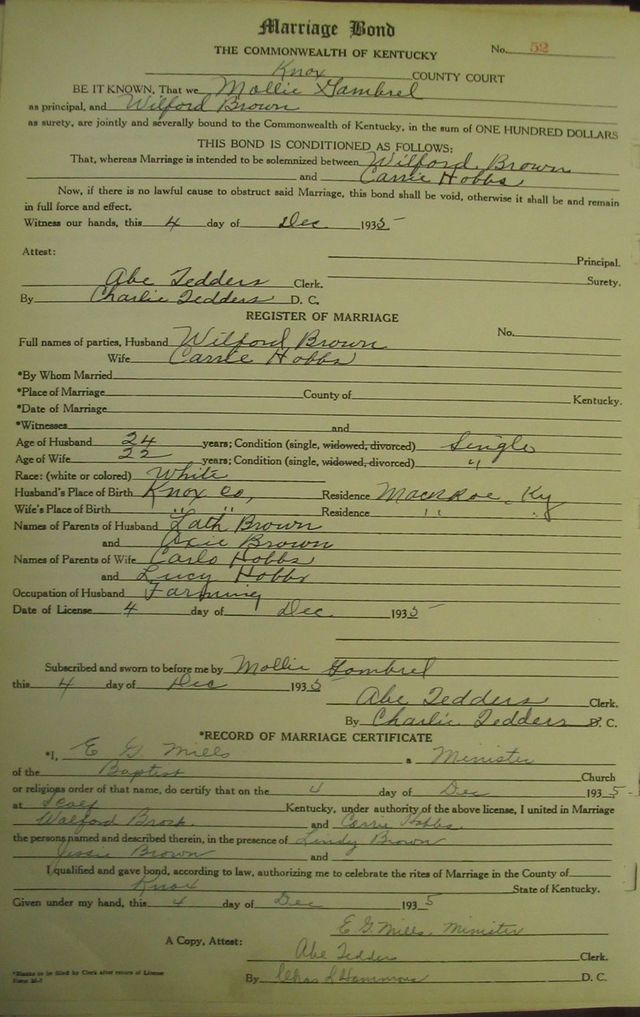 Marriage Bond
THE COMMONWEALTH OF KENTUCKY
No. 52
Knox COUNTY COURT
BE IT KNOWN, That we Mollie Gambrel
as principal, and Wilford Brown
as surety, are jointly and severally bound to the Commonwealth of Kentucky, in the sum of ONE HUNDRED DOLLARS
THIS BOND IS CONDITIONED AS FOLLOWS:
That, whereas Marriage is intended to be solemnized between Wilford Brown
and Carrie Hobbs
Now, if there is no lawful cause to obstruct said Marriage, this bond shall be void, otherwise it shall be and remain
in full force and effect.
Witness our hands, this 4 day of Dec 1935
Principal.
Attest:
Surety.
Abe Tedders Clerk.
By Charlie Tedders D. C.
REGISTER OF MARRIAGE
No.
Full names of parties, Husband Wilford Brown
Wife Carrie Hobbs
*By Whom Married
*Place of Marriage County of Kentucky.
*Date of Marriage
*Witnesses and
Age of Husband 24 years; Condition (single, widowed, divorced) Single
Age of Wife 22 years; Condition (single, widowed, divorced) "
Race: (white or colored) White
Husband's Place of Birth Knox Co, Residence Ky
Wife's Place of Birth " " Residence " "
Names of Parents of Husband Lath Brown
and Brown
Names of Parents of Wife Carlo Hobbs
and Lucy Hobbs
Occupation of Husband Farming
Date of License 4 day of Dec 1935
Subscribed and sworn to before me by Mollie Gambrel
this 4 day of Dec 1935
Abe Tedders Clerk.
By Charlie Tedders D. C.
*RECORD OF MARRIAGE CERTIFICATE
*I, E G Mills a Minister
of the Baptist Church
or religious order of that name, do certify that on the 4 day of Dec 1935
at Scalf Kentucky, under authority of the above license, I united in Marriage
Walford and Carrie Hobbs
the persons named and described therein, in the presence of Lindy Brown
Jessie Brown and
I qualified and gave bond, according to law, authorizing me to celebrate the rites of Marriage in the County of
Knox State of Kentucky.
Given under my hand, this 4 day of Dec 1935
E G Mills Minister
A Copy, Attest: Abe Tedders Clerk.
*Blanks to be filled by Clerk after return of License
By Chas S Hammons D. C.